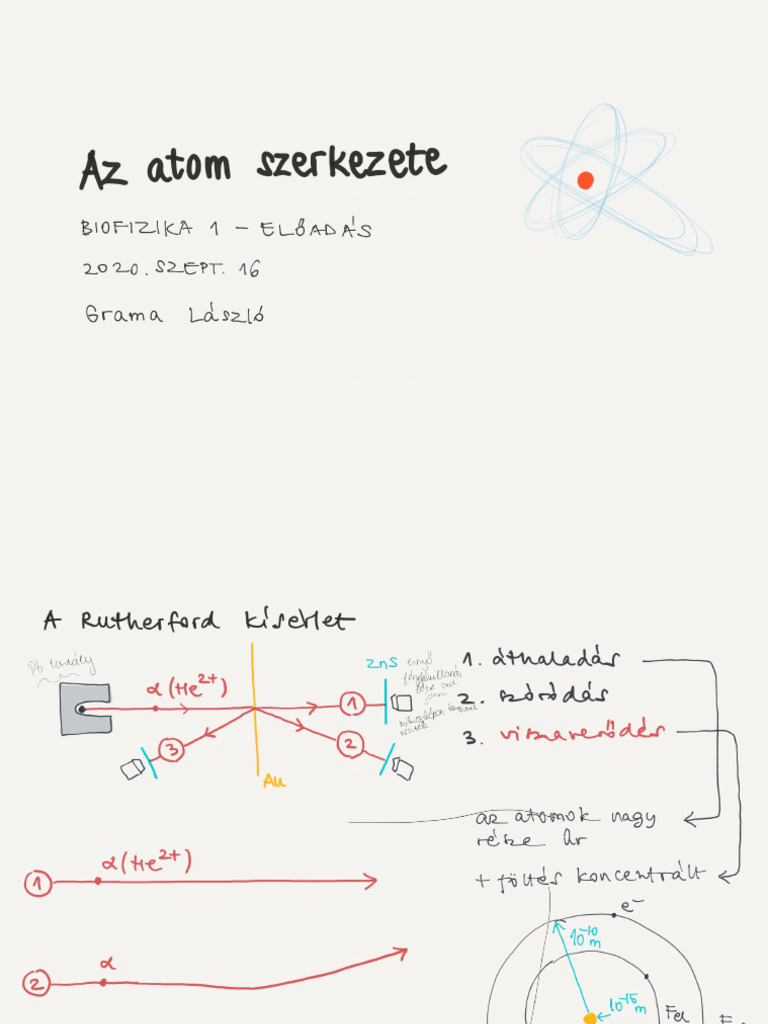 Az atom szerkezete
BIOFIZIKA 1 - ELŐADÁS
2020. SZEPT. 16
Grama László
A Rutherford kísérlet
Pb tartály
α(He²⁺)
ZnS ernyő
1
2
3
Au
1. áthaladás
2. szóródás
3. visszaverődés
az atomok nagy
része űr
+ töltés koncentrált
1
α(He²⁺)
2
α
e⁻
10⁻¹⁰ m
10⁻¹⁵ m